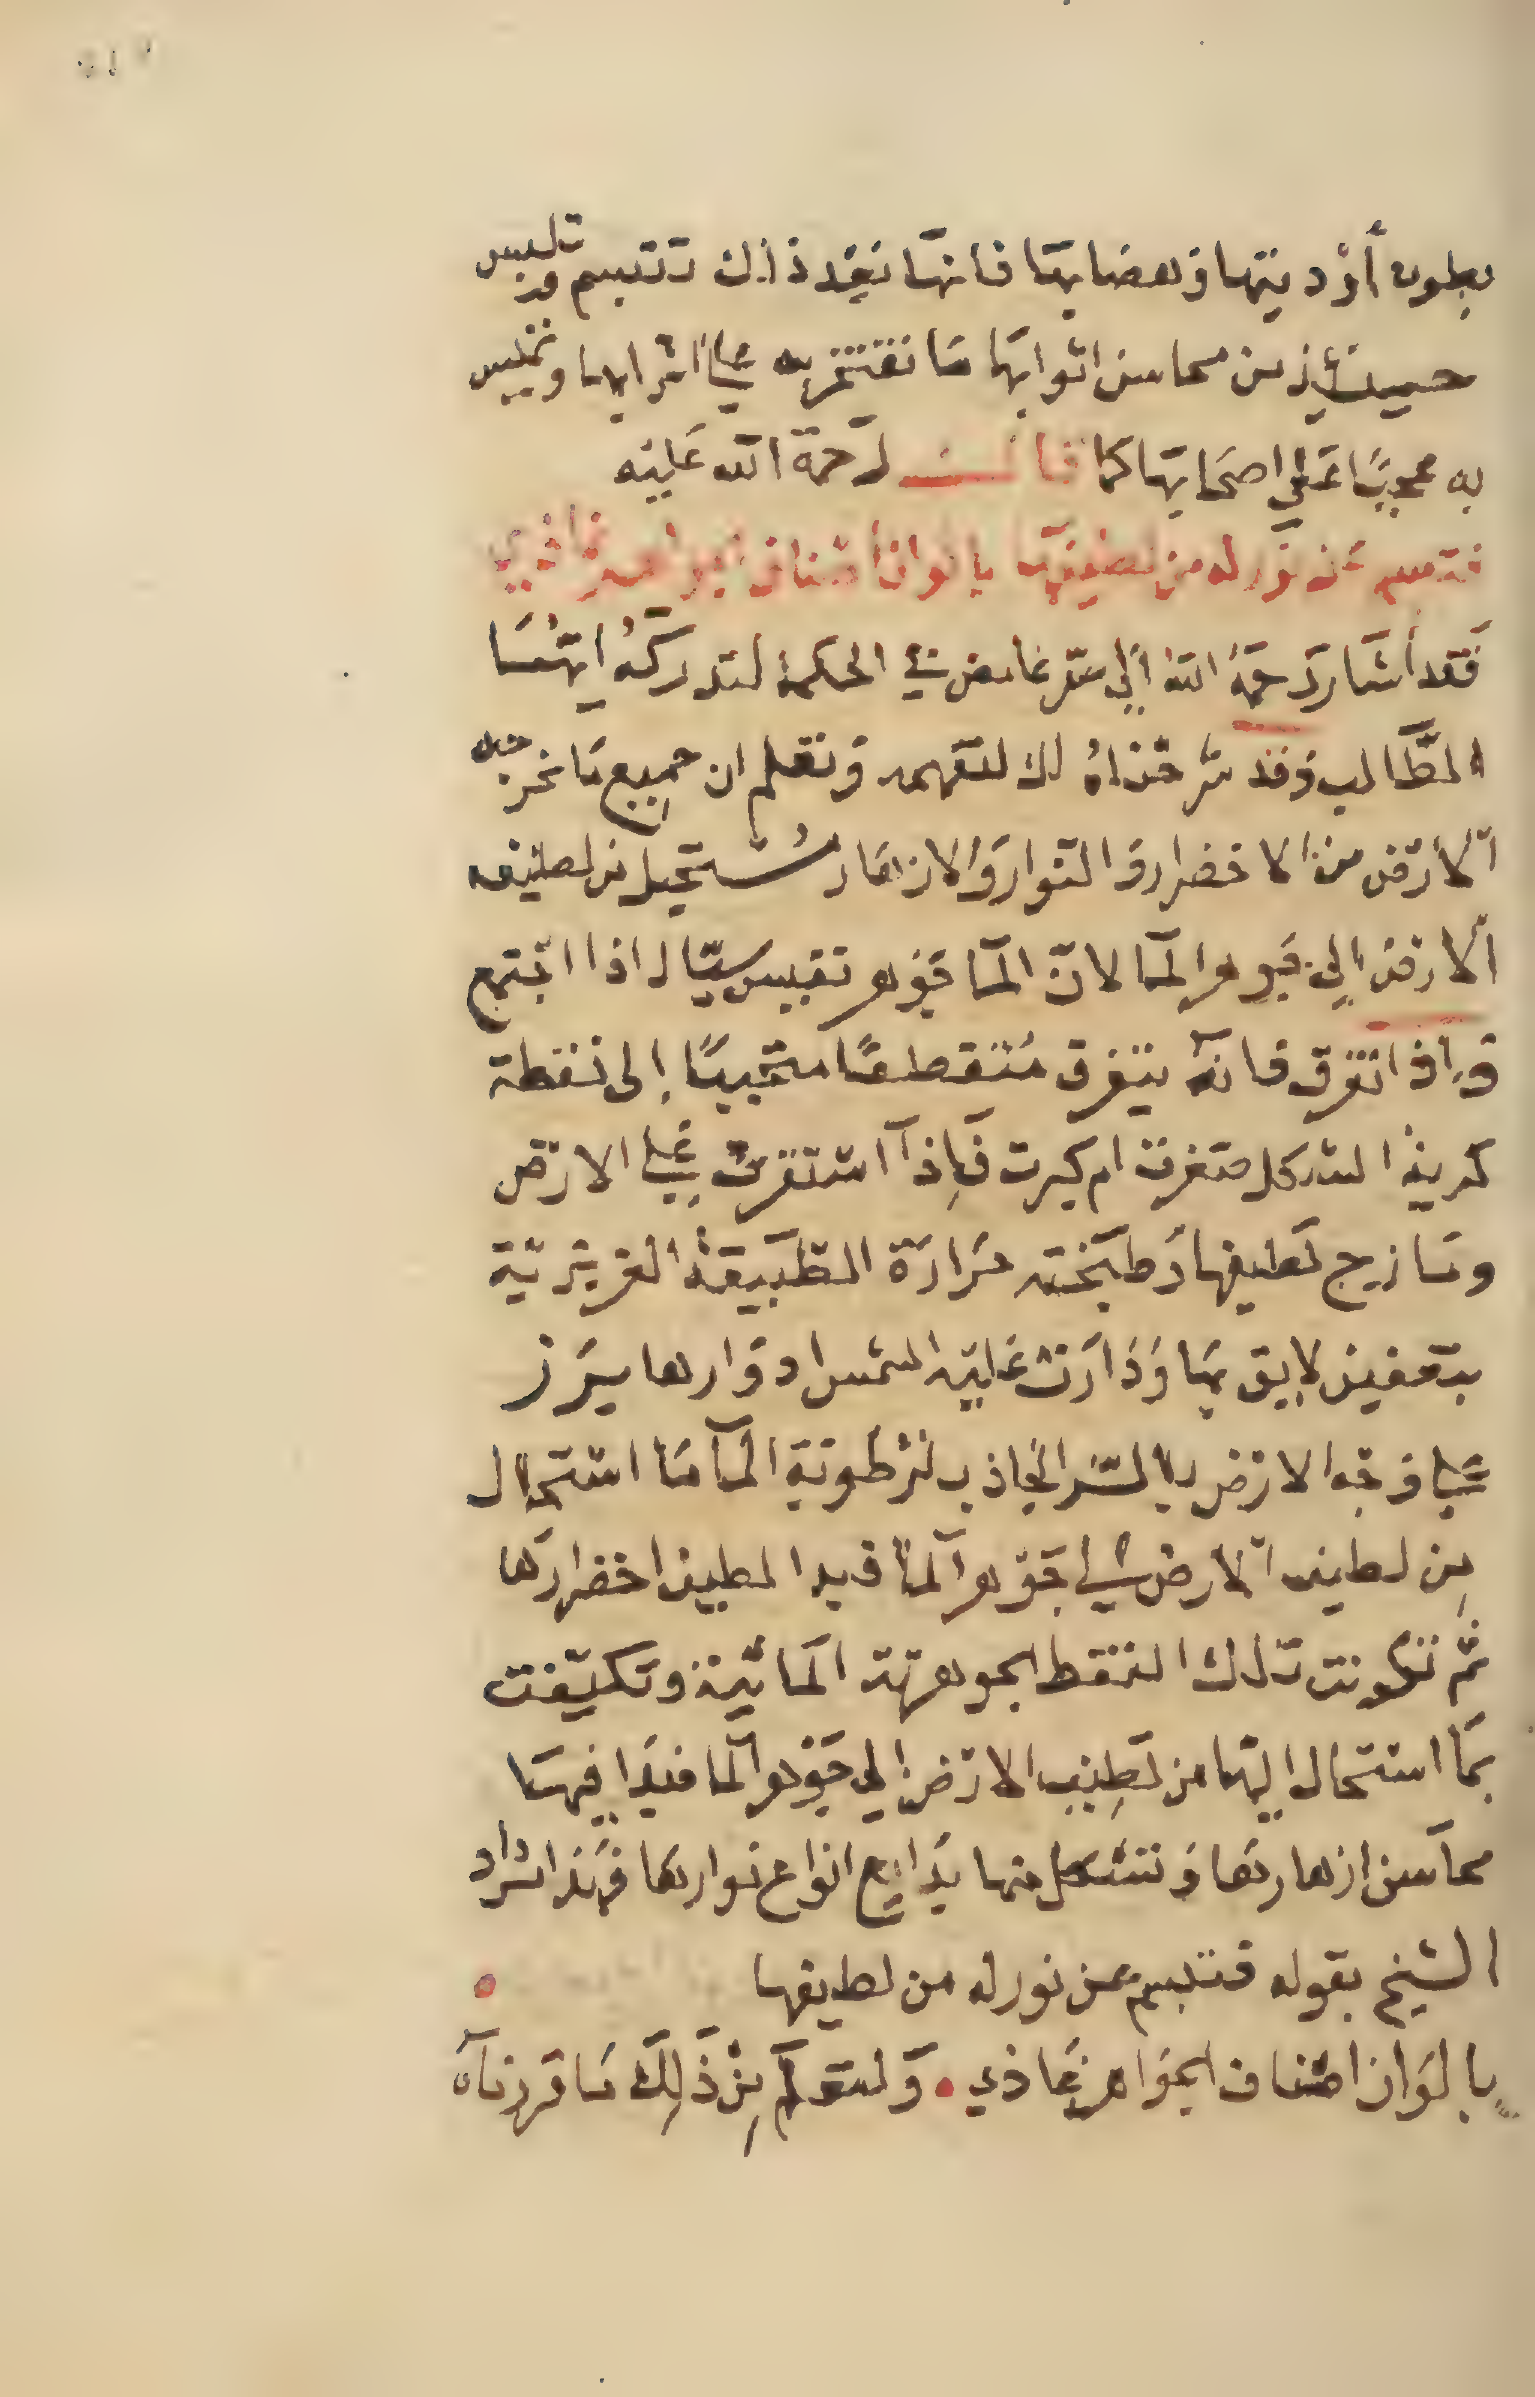 بطون أوديتها وهضابها فانها بعد ذلك تتبسم وتلبس
حينئذ من محاسن اثوابها ما تفتخر به على اترابها وتميس
به عجبًا على اصحابها كما قال رحمة الله عليه
فتبسم عن نور له من لطيفها بالوان اصناف الجواهر
فقد أشار رحمهُ الله إلى سر غامض في الحكمة لتدركهُ ايها
الطَّالب وقد شرحناهُ لك لتفهمه وتعلم ان جميع ما تخرجه
الارض من الاخضرار والنوار والازهار مُستحيل من لطيف
الارض إلى جوهر الما لان الما جوهر نفيس سيّال اذا اجتمع
وإذا تفرق فانه يتفرق مُتقطعًا متحببًا إلى نقطة
كرية الشكل صغرت ام كبرت فإذا استقرت على الارض
ومازج لطيفها وطبخته حرارة الطبيعة الغريزية
بتعفين لايق بها ودارت عليه الشمس ادوارها يبرز
على وجه الارض بالسر الجاذب لرطوبة الما ما استحال
من لطيف الارض الى جوهر الما فبدا لطيف اخضرارها
ثم تكونت تلك النقط الجوهرية المائية وتكيفت
بما استحال اليها من لطيف الارض إلى جوهر الما فبدا فيها
محاسن ازهارها وتشكل منها بدايع انواع نوارها فهذا مراد
الشيخ بقوله فتبسم عن نور له من لطيفها
بالوان اصناف الجواهر غاذي . ولنقدم من ذلِكَ ما قررناه